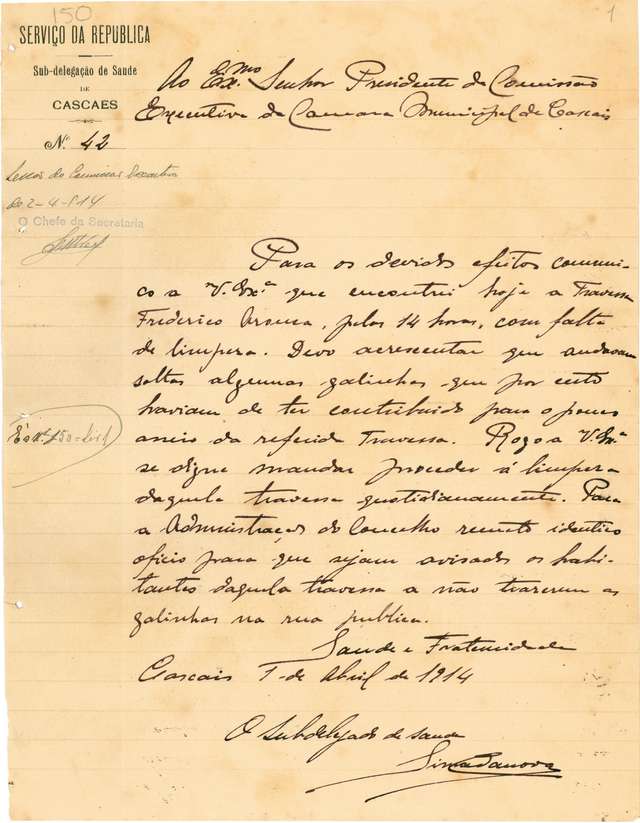 150
1
SERVIÇO DA REPUBLICA
Sub-delegação de Saude
DE
CASCAES
Nº 42
Ao Exmo Senhor Presidente da Comissão
Executiva da Camara Municipal de Cascais
2-4-914
O Chefe da Secretaria
Para os devidos efeitos communi-
co a V. Exª que encontrei hoje a Travessa
Frederico Arouca, pelas 14 horas, com falta
de limpeza. Devo acrescentar que andavam
soltas algumas galinhas que por certo
haviam de ter contribuido para o pouco
aneio da referida Travessa. Rogo a V. Exª
se digne mandar proceder á limpeza
daquela travessa quotidianamente. Para
a Administração do Concelho remeto identico
oficio para que sejam avisados os habi-
tantes daquela travessa a não trazerem as
galinhas na rua publica.
Saude e Fraternidade
Cascais 1 de Abril de 1914
O Subdelegado de saude